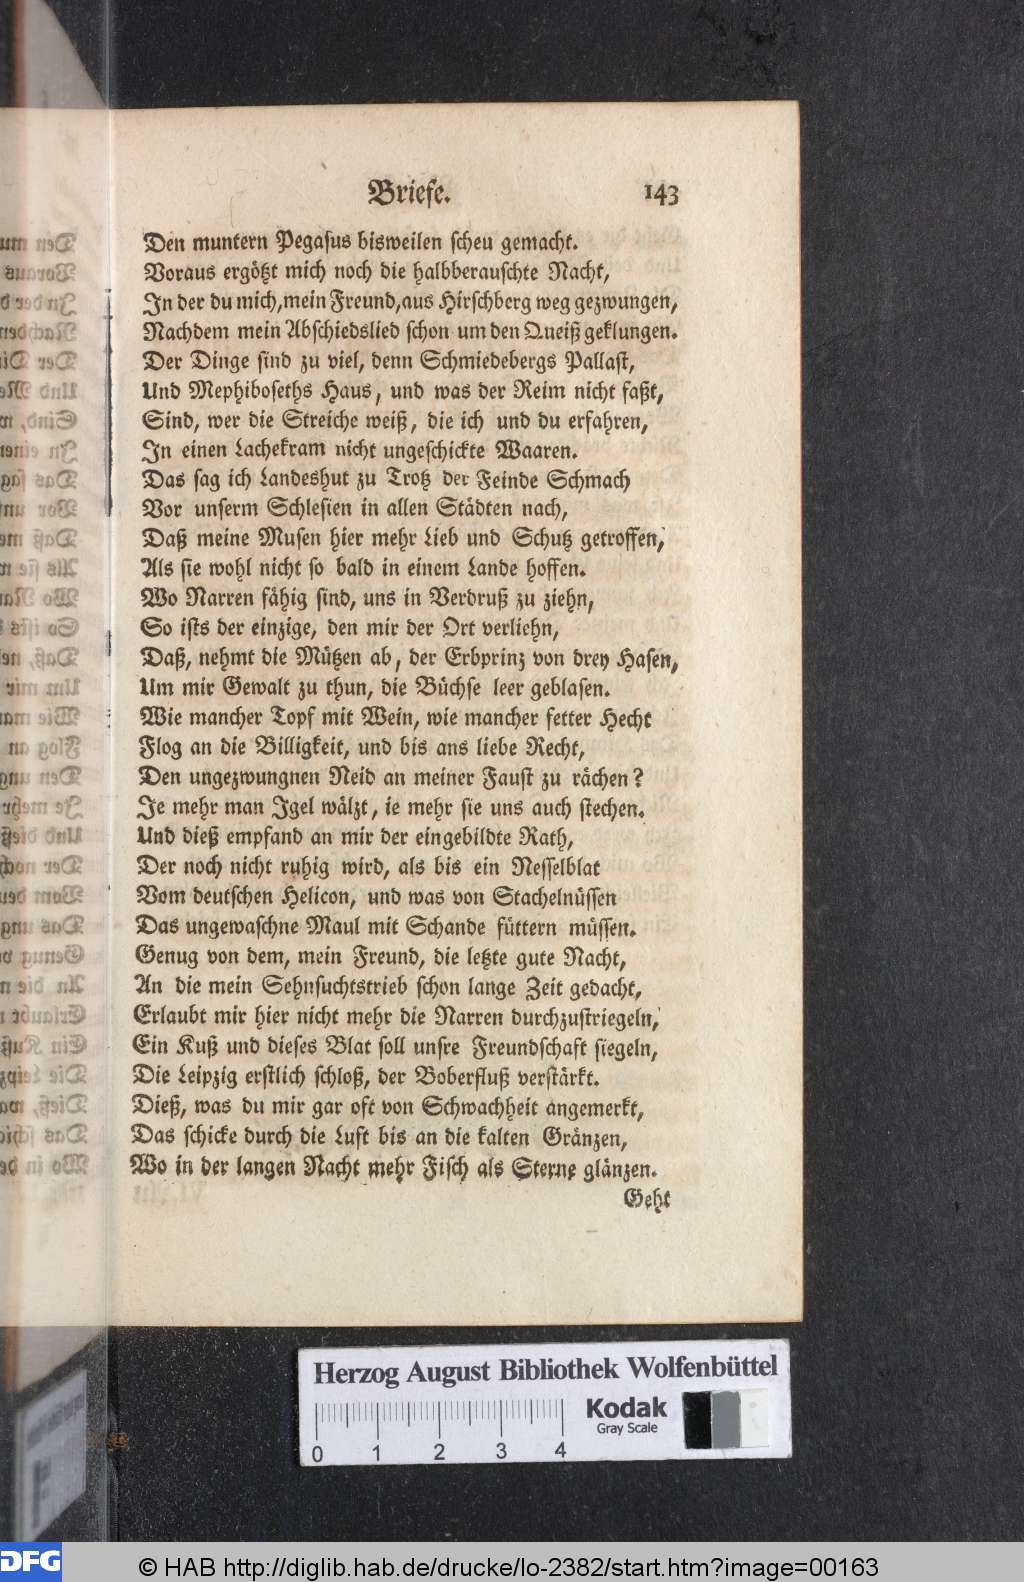 Briefe. 143
Den muntern Pegasus bisweilen scheu gemacht.
Voraus ergötzt mich noch die halbberauschte Nacht,
In der du mich, mein Freund, aus Hirschberg weg gezwungen,
Nachdem mein Abschiedslied schon um den Queiß geklungen.
Der Dinge sind zu viel, denn Schmiedebergs Pallast,
Und Mephiboseths Haus, und was der Reim nicht faßt,
Sind, wer die Streiche weiß, die ich und du erfahren,
In einen Lachekram nicht ungeschickte Waaren.
Das sag ich Landeshut zu Trotz der Feinde Schmach
Vor unserm Schlesien in allen Städten nach,
Daß meine Musen hier mehr Lieb und Schutz getroffen,
Als sie wohl nicht so bald in einem Lande hoffen.
Wo Narren fähig sind, uns in Verdruß zu ziehn,
So ists der einzige, den mir der Ort verliehn,
Daß, nehmt die Mützen ab, der Erbprinz von drey Hasen,
Um mir Gewalt zu thun, die Büchse leer geblasen.
Wie mancher Topf mit Wein, wie mancher fetter Hecht
Flog an die Billigkeit, und bis ans liebe Recht,
Den ungezwungnen Neid an meiner Faust zu rächen?
Je mehr man Igel wälzt, ie mehr sie uns auch stechen.
Und dieß empfand an mir der eingebildte Rath,
Der noch nicht ruhig wird, als bis ein Nesselblat
Vom deutschen Helicon, und was von Stachelnüssen
Das ungewaschne Maul mit Schande füttern müssen.
Genug von dem, mein Freund, die letzte gute Nacht,
An die mein Sehnsuchtstrieb schon lange Zeit gedacht,
Erlaubt mir hier nicht mehr die Narren durchzustriegeln,
Ein Kuß und dieses Blat soll unsre Freundschaft siegeln,
Die Leipzig erstlich schloß, der Boberfluß verstärkt.
Dieß, was du mir gar oft von Schwachheit angemerkt,
Das schicke durch die Luft bis an die kalten Gränzen,
Wo in der langen Nacht mehr Fisch als Sterne glänzen.
Geht
Herzog August Bibliothek Wolfenbüttel
Kodak
Gray Scale
0 1 2 3 4
DFG © HAB http://diglib.hab.de/drucke/lo-2382/start.htm?image=00163